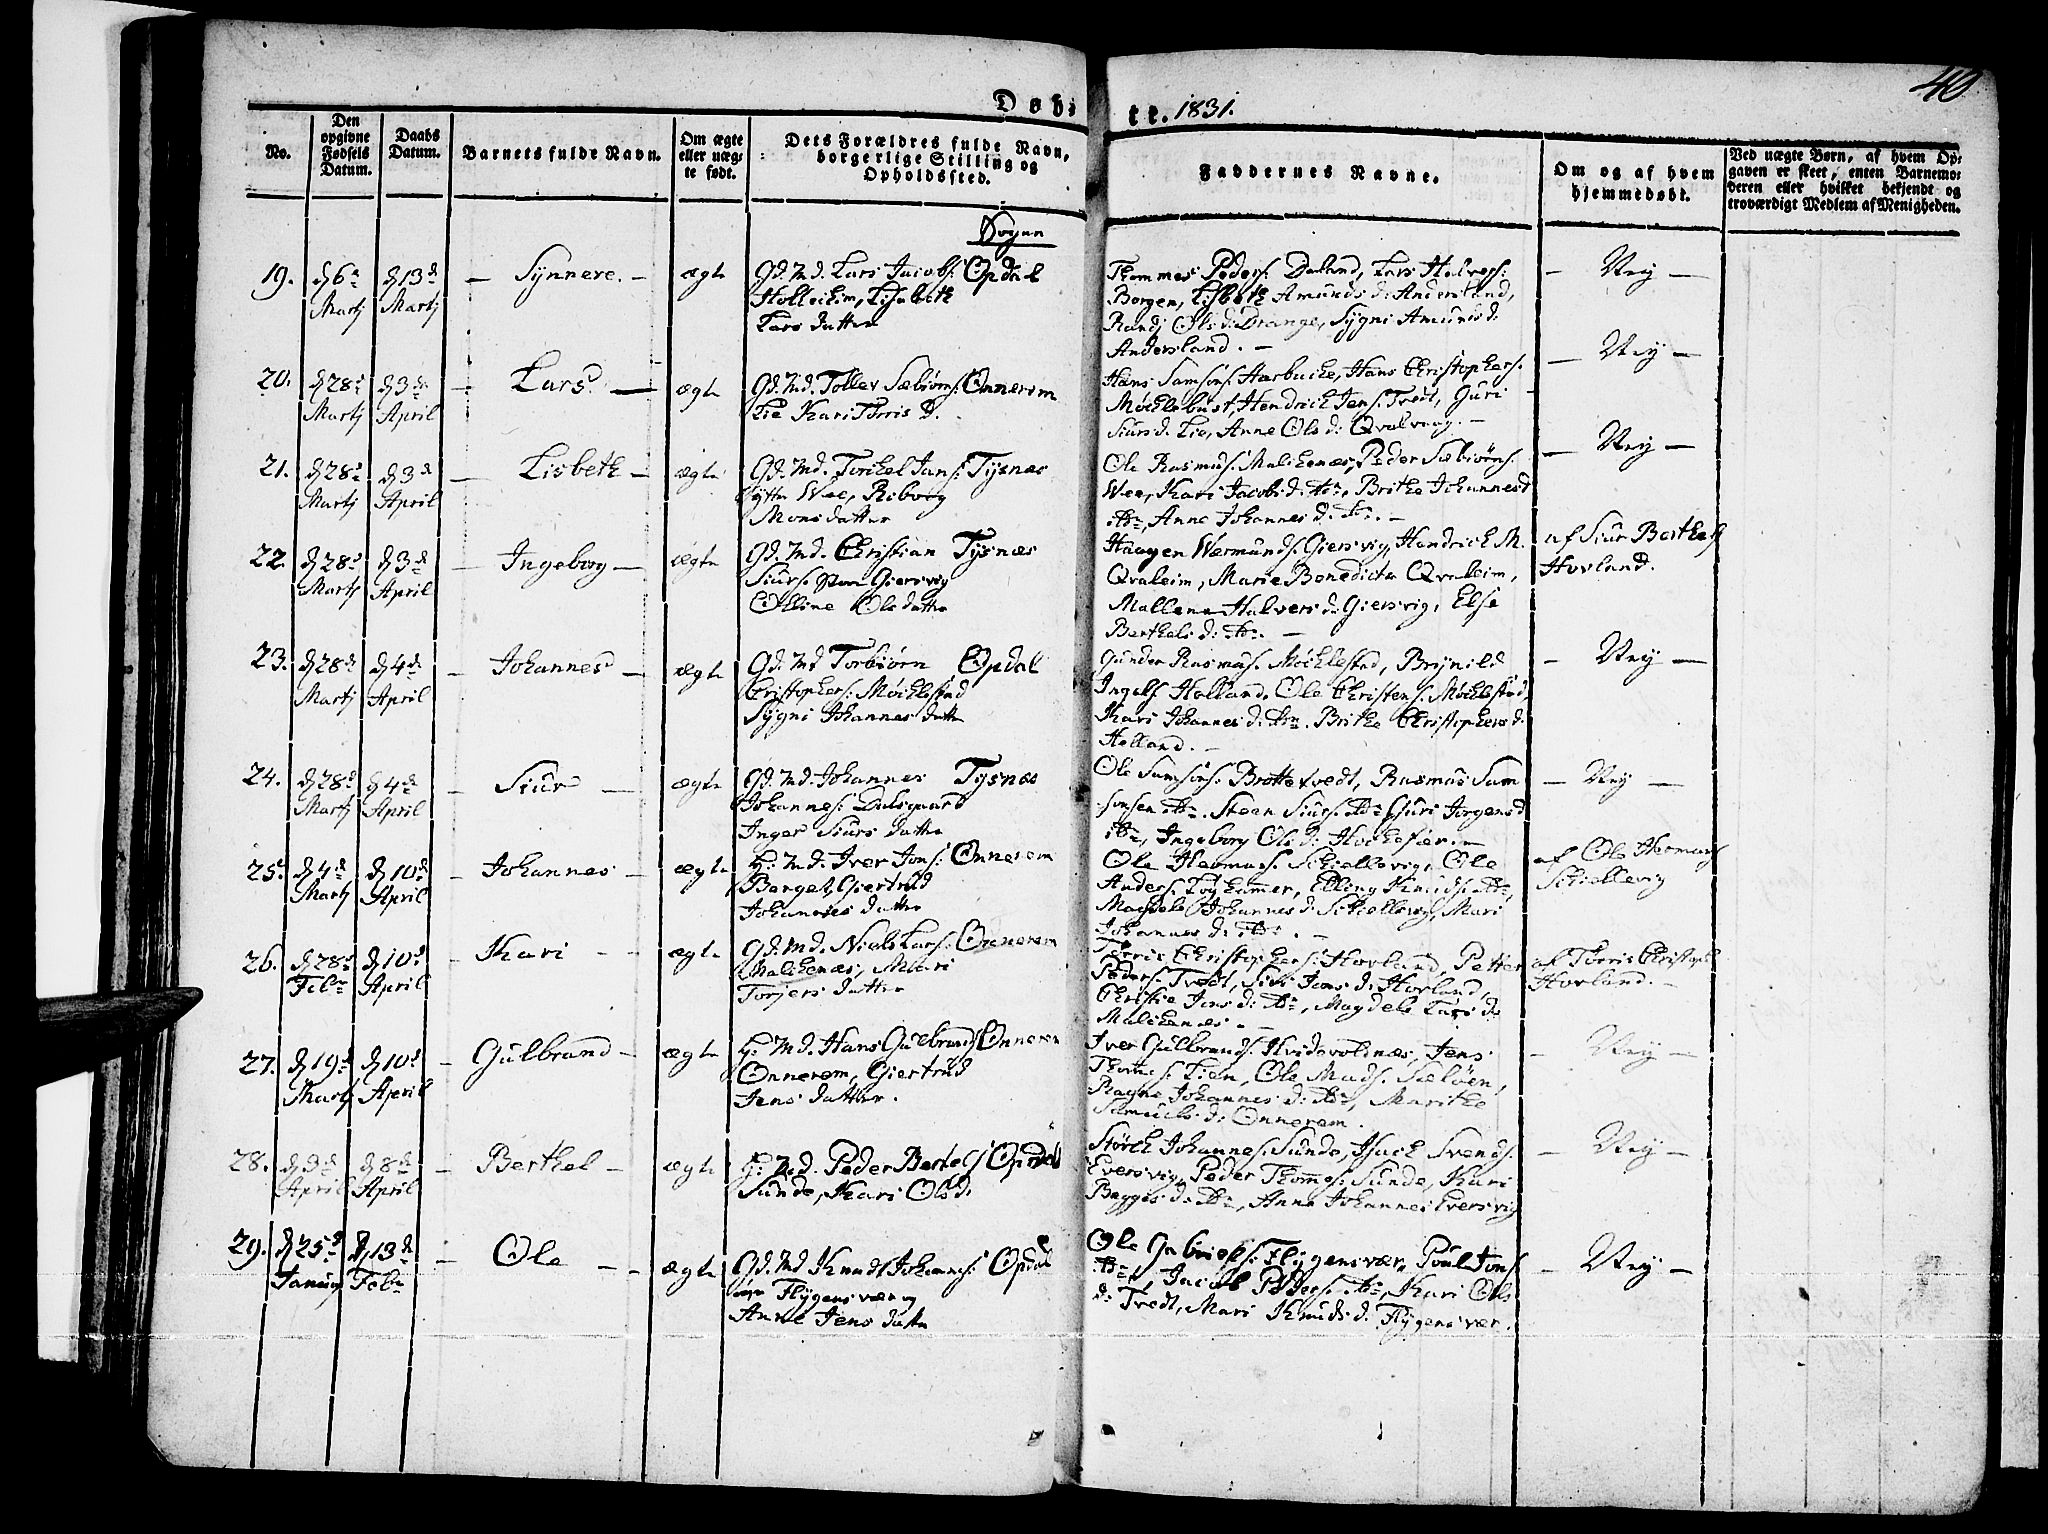 40
Døbte. 1831.
No.
Den opgivne Fødsels Datum.
Daabs Datum.
Barnets fulde Navn.
Om ægte eller uægte født.
Dets Forældres fulde Navn, borgerlige Stilling og Opholdssted.
Faddernes Navne.
Om og af hvem hjemmedøbt.
Ved uægte Børn, af hvem Opgaven er skeet, enten Barnemoderen eller hvilket bekjendt og troværdigt Medlem af Menigheden.
Sogn
19. d 6te Martj d 13de Martj - Synnere. - ægte
Gd. Md. Lars Jacobs: Opdal
Holleheim, Lisabeth
Lars datter
Thommes Peders: Daland, Lars Halvors:
Borgen, Lisbeth Amunds d: Andersland,
Randj Ols d: Drange, Sygni Amunds d:
Andersland. -
- Nej -
20. d 28de Martj d 3de April - Lars - ægte
Gd. Md. Tollev Sæbiøns: Onnerem
Lie Kari Torris d.
Hans Samsons: Aarbucke, Hans Christophers:
Møcklebust, Hendrich Jens: Tvedt, Guri
Siurs d. Lie, Anne Ols d: Qvalvaag. -
- Nej -
21. d 28de Martj d 3de April - Lisbeth - ægte
Gd. Md. Torckel Jans: Tysnæs
Ytte Wee, Ribvog
Mons datter
Ole Rasmus: Malckenæs, Peder Sæbiøns:
Wee, Kari Jacobs d: ibm, Brithe Johannes d
ibm, Anna Johannes d. ibm. -
- Nej -
22. d 28de Martj d 3de April - Ingeborg - ægte
Gd. Md. Christian Tysnæs
Siurs: Giersvig
Olline Ols datter
Haagen Wermunds: Giersvig, Hendrich M.
Qvaleim, Marie Benedicta Qvaleim,
Mallena Halvers d: Giersvig, Else
Berthels d: ibm. -
af Siur Berthels
Hovland.
23. d 28de Martj d 4de April - Johannes - ægte
Gd. Md Torbiørn Opdal
Christophers: Møcklestad
Sygni Johannes datter
Gunder Rasmus: Møcklestad, Brynild
Ingels: Holland. Ole Christens: Møcklestad
Kari Johannes d: ibm. Brithe Christophers d:
Holland. -
- Nej -
24. d 28de Martj d 4de April - Siur - ægte
Gd. Md. Johannes Tysnæs
Johannes: Dalsgaard
Inger Siurs datter
Ole Samsons: Brottetvedt, Rasmus Sam
sonsen ibm. Steen Siurs: ibm Guri Jorgens d
ibm, Ingeborg Ols d: Hockefær. -
- Nej -
25. d 4de Martj d 10de April - Johannes - ægte
H: Md. Iver Jons: Onnerem
Berget, Giertrud
Johannes datter
Ole Hermans: Skiellevig, Ole
Anders: Loykammer, Elling Knuds: ibm,
Magdele Johannes d: Skiellevig, Mari
Johannes d: ibm. -
af Ole Hermans
Skiellevig
26. d 28de Febr d 10de April - Kari - ægte
Gd. Md. Niels Lars: Onnerem
Malckenæs, Mari
Torjers datter
Torris Christophers: Hovland, Petter
Peders: Tvedt, Siri Jons d: Hovland,
Christie Jens d: ibm, Magdele Lars d:
Malckenæs. -
af Thorris Christoph
Hovland. -
27. d 19de Martj d 10de April - Gulbrand - ægte
H: Md. Hans Gulbrands Onnerem
Onnerem, Giertrud
Jens datter.
Iver Gulbrands: Hvidevoldnæs, Jens
Thomes: Lien, Ole Mads: Sæløen,
Ragna Johannes d: ibm, Marithe
Samuels d: Onnerem.
- Nej -
28. d 3de April d 8de April - Berthel - ægte
H: Md. Peder Bertels: Opdal
Sunde, Kari Ols d:
Størck Johannes: Sunde, Isach Svends:
Eversvig, Peder Thomes: Sunde, Kari
Bagges d: ibm, Anna Johannes Eversvig
- Nej -
29. d 25de Januej d 13de Febr - Ole - ægte
Gd. Md Knud Johannes: Opdal
Flygensvær og
Anne Jens datter
Ole Gabriels: Flygensvær, Poul Jons:
ibm, Jacob Peders: ibm, Kari Ols
d: Tvedt, Mari Knuds d. Flygensvær.
- Nej -